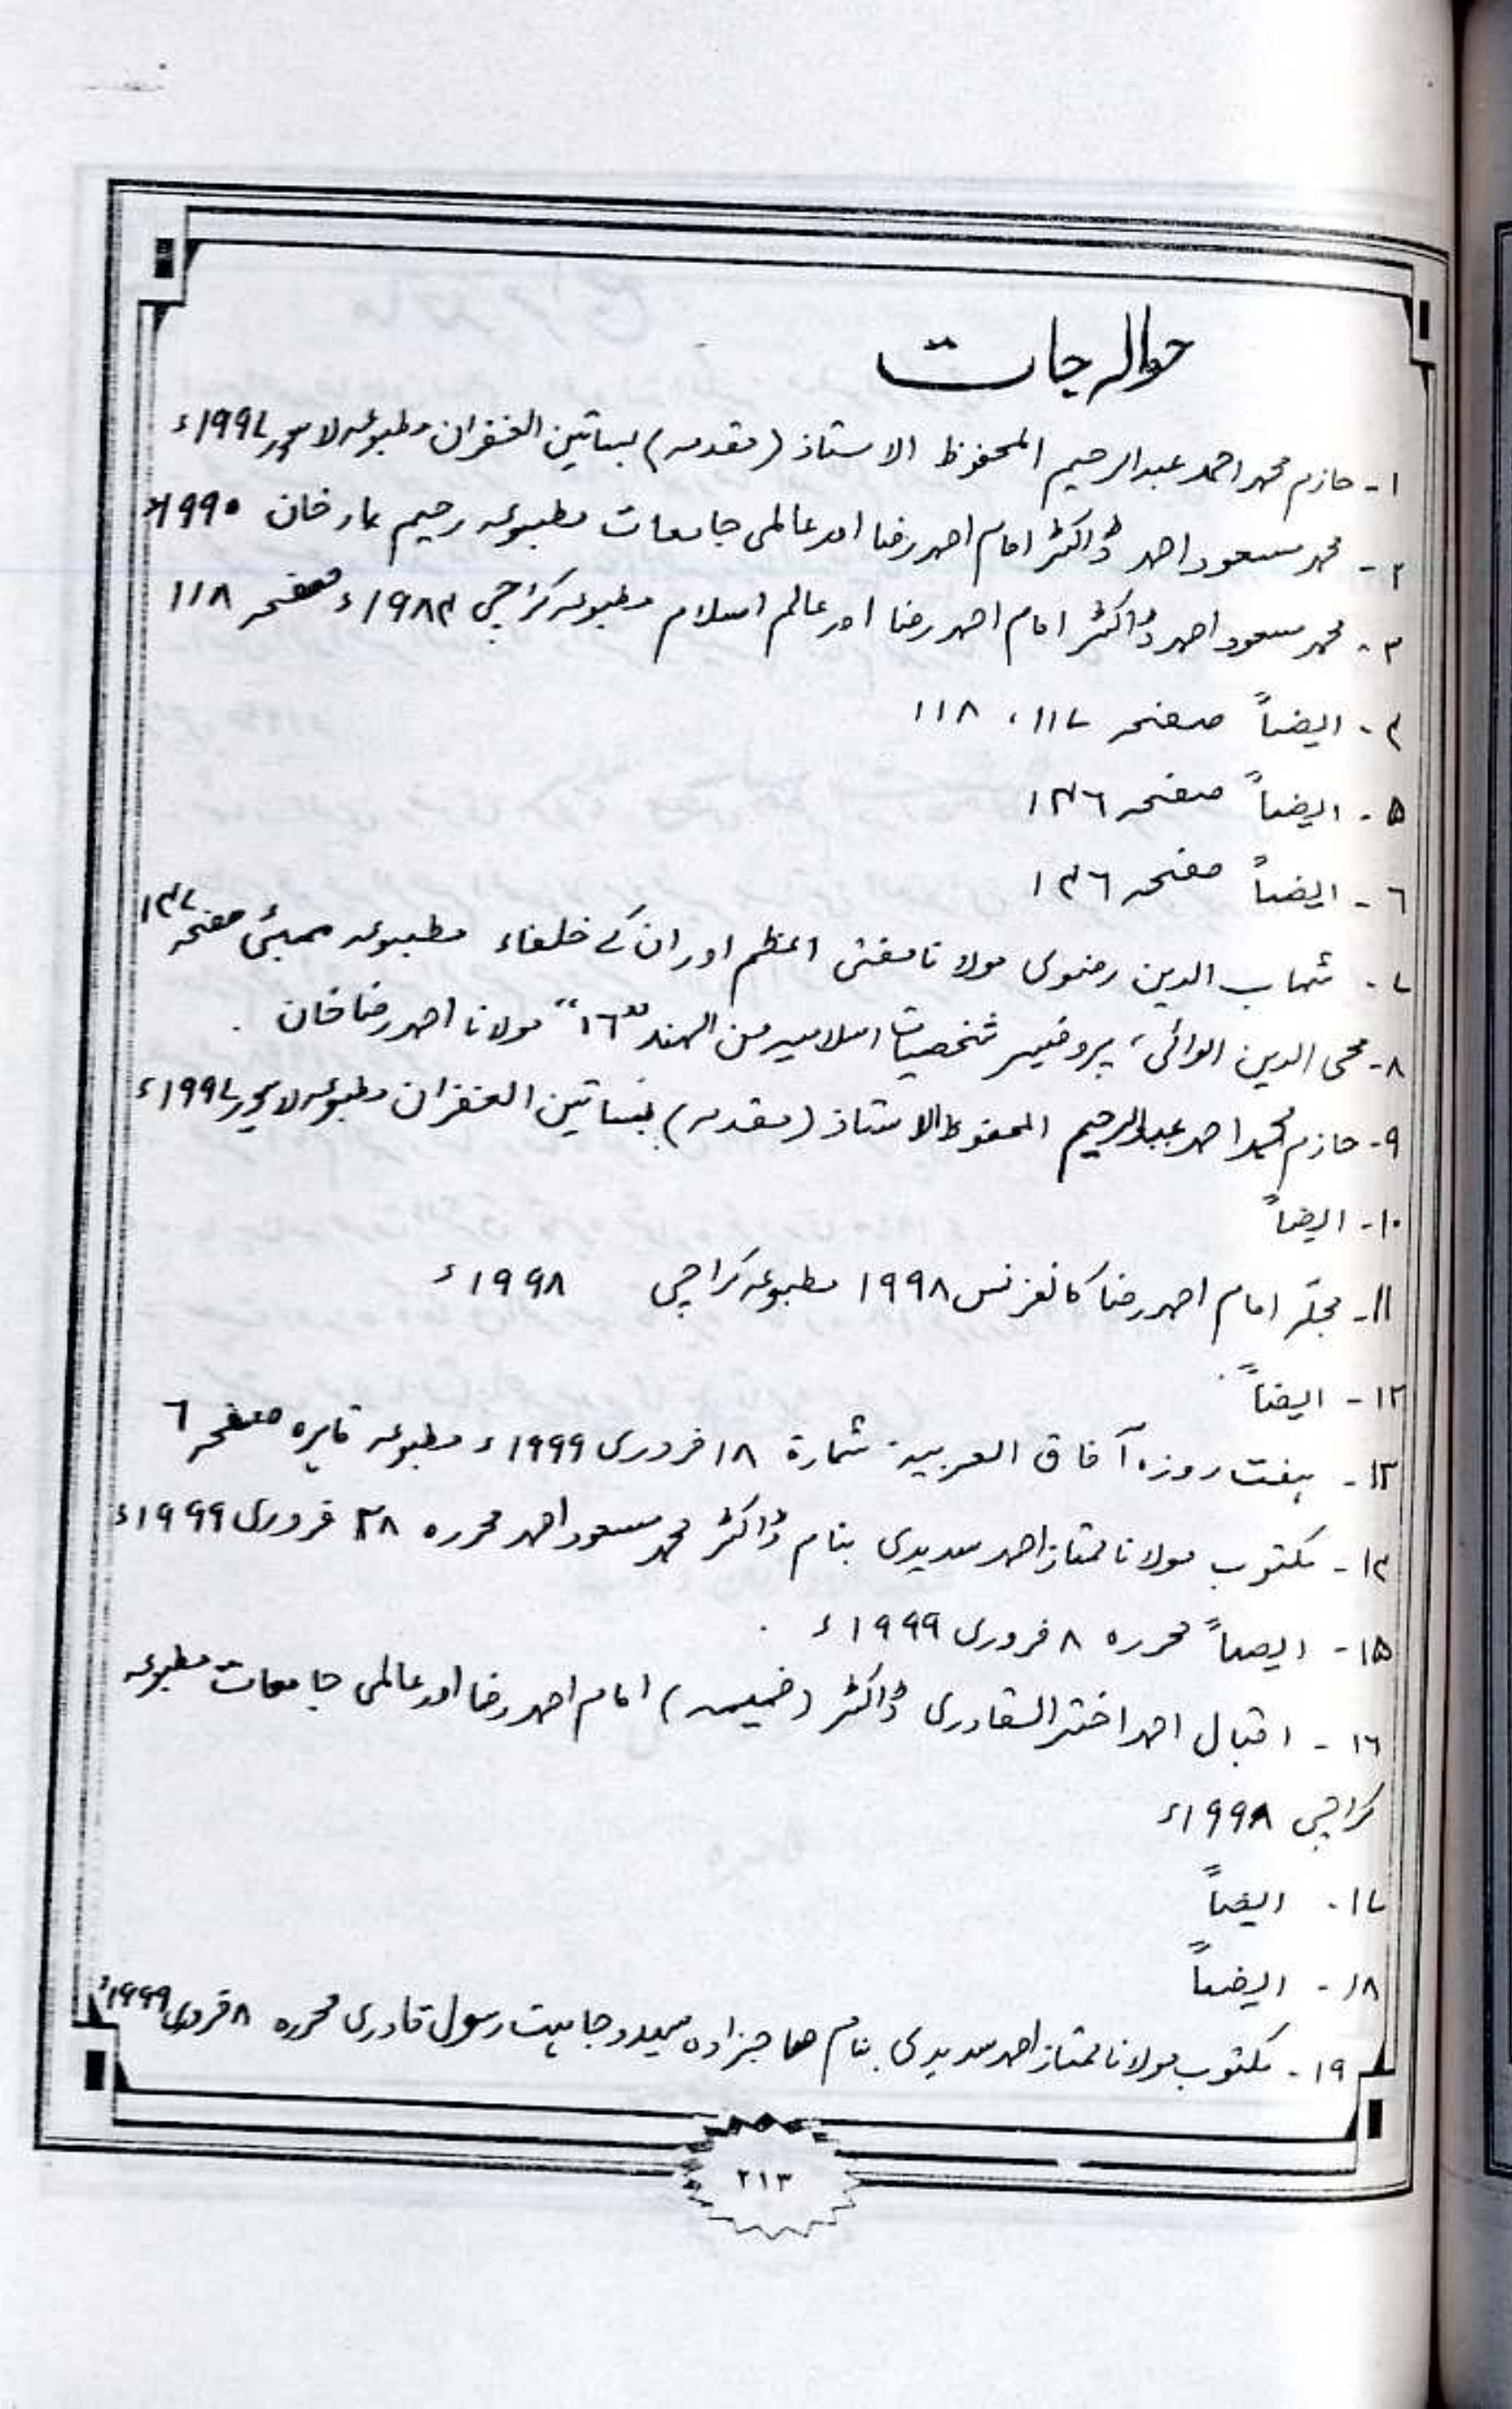 حوالہ جات
۱- حازم محمد احمد عبدالرحیم المحفوظ الاستاذ (مقدمہ) بساتین الغفران مطبوعہ لاہور ۱۹۹۷ء
۲- محمد مسعود احمد ڈاکٹر امام احمد رضا اور عالمی جامعات مطبوعہ رحیم یار خان ۱۹۹۰ء
۳- محمد مسعود احمد ڈاکٹر امام احمد رضا اور عالم اسلام مطبوعہ کراچی ۱۹۸۴ء صفحہ ۱۱۸
۴- ایضاً صفحہ ۱۱۷، ۱۱۸
۵- ایضاً صفحہ ۱۴۶
۶- ایضاً صفحہ ۱۴۶
۷- شہاب الدین رضوی مولانا مفتی اعظم اور ان کے خلفاء مطبوعہ ممبئی صفحہ ۱۴۷
۸- محی الدین الوائی، پروفیسر شخصیات اسلامیہ من الہند "۱۶" مولانا احمد رضا خان
۹- حازم محمد احمد عبدالرحیم المحفوظ الاستاذ (مقدمہ) بساتین الغفران مطبوعہ لاہور ۱۹۹۷ء
۱۰- ایضاً
۱۱- مجلّہ امام احمد رضا کانفرنس ۱۹۹۸ مطبوعہ کراچی ۱۹۹۸ء
۱۲- ایضاً
۱۳- ہفت روزہ آفاق العربیہ شمارۃ ۱۸ فروری ۱۹۹۹ء مطبوعہ قاہرہ صفحہ ۶
۱۴- مکتوب مولانا ممتاز احمد سدیدی بنام ڈاکٹر محمد مسعود احمد محررہ ۲۸ فروری ۱۹۹۹ء
۱۵- ایضاً محررہ ۸ فروری ۱۹۹۹ء
۱۶- اقبال احمد اختر القادری ڈاکٹر (ضمیمہ) امام احمد رضا اور عالمی جامعات مطبوعہ
کراچی ۱۹۹۸ء
۱۷- ایضاً
۱۸- ایضاً
۱۹- مکتوب مولانا ممتاز احمد سدیدی بنام صاحبزادہ سید وجاہت رسول قادری محررہ ۸ فروری ۱۹۹۹ء
۲۱۳